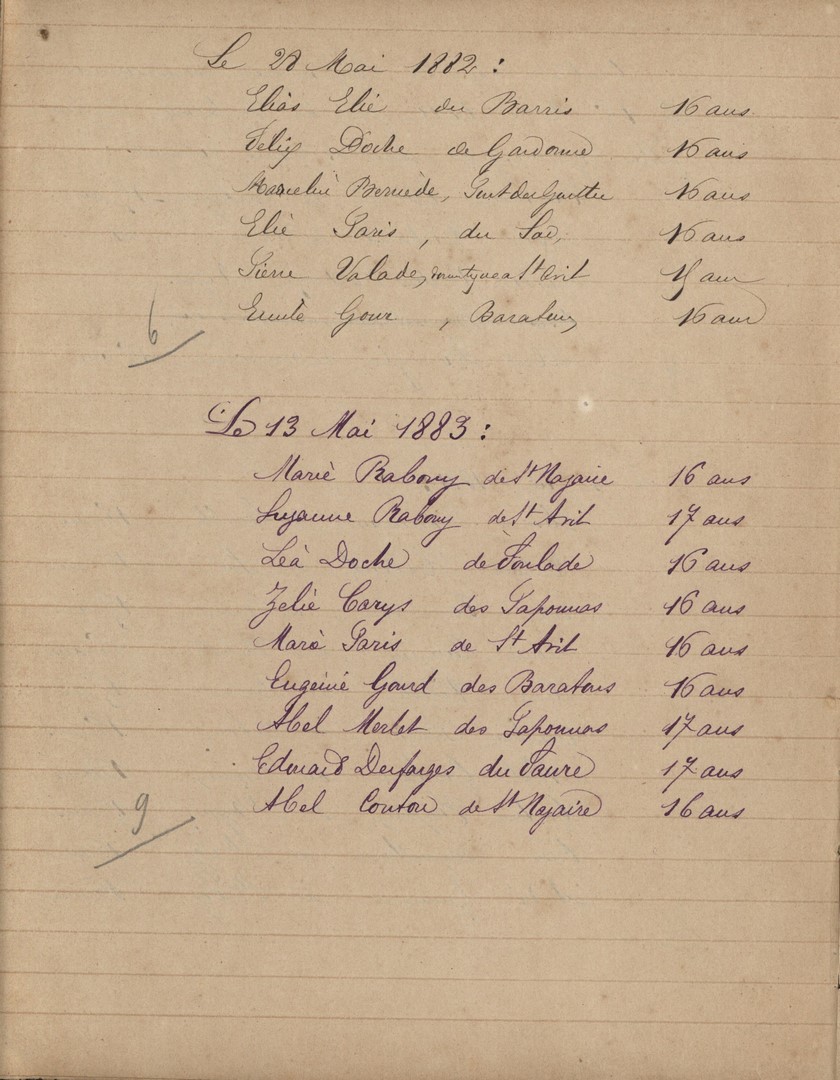 Le 28 Mai 1882 :
Elias Elié du Barris 16 ans
Felix Doche de Gardonne 16 ans
Bernède, 16 ans
Elie Paris, du Sac, 16 ans
Pierre Valade, domestique a St Avit 15 ans
Emile Gour, Baratous 16 ans
6
Le 13 Mai 1883 :
Mariè Rabouy de St Nazaire 16 ans
Suzanne Rabouy de St Avit 17 ans
Leà Doche de Foulade 16 ans
Zelie Carys des Gaponnas 16 ans
Paris de St Avit 16 ans
Eugeiné Gourd des Baratous 16 ans
Abel Merlet des Gaponnas 17 ans
Edouard Desfarges du Faure 17 ans
Abel Coutou de St Nazaire 16 ans
9